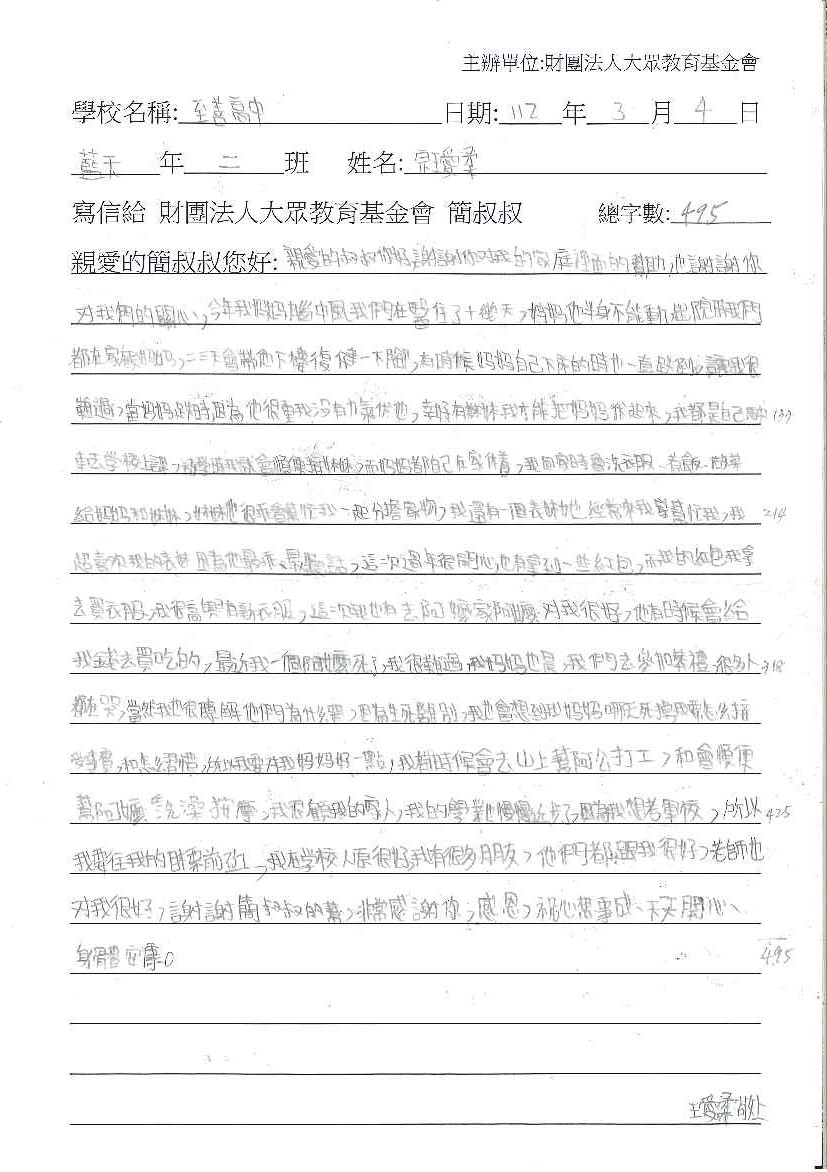 主辦單位:財團法人大眾教育基金會
學校名稱: 至善高中 日期: 112 年 3 月 4 日
藍天 年 二 班 姓名: 愛柔
寫信給 財團法人大眾教育基金會 簡叔叔 總字數: 495
親愛的簡叔叔您好: 親愛的叔叔你好,謝謝你对我的家庭裡面的幫助,也謝謝你
对我們的關心,今年我媽媽腦中風我們在醫住了十幾天,媽媽他半身不能動,出院所我們
都在家 媽媽,二三天會帶他下樓復健一下腳,有時候媽媽自己下床的時 一直跌倒,讓我很
難過,當媽媽跌時因為他很重我沒有力氣 他,幸好有妹妹我才能把媽媽 起來,我都是自己 137
車去學校上課, 我就會順便 妹妹,而媽媽都自己在家 ,我回家時會洗衣服、煮飯、
給媽媽和妹妹,妹妹也很乖會幫忙我一起分擔家物,我還有一個表妹她 經常來我 幫忙我,我 214
超喜欢我的表妹,因為他最乖、最聽話,這次過年很開心,也有拿到一些紅包,而我的紅包我拿
去買衣服,我很高興有新衣服,這次 也有去阿嬤家阿嬤对我很好,他有時候會給
我錢去買吃的,最近我一個阿嬤死了,我很難過,我媽媽也是,我們去參加葬禮,很多人 318
都在哭,當然我也很瞭解他們為什么哭,因為生死離別,我也會想到我媽媽哪天死掉我要怎么接
受事實,和怎 ,所以我要对我媽媽好一點,我有時候會去山上幫阿公打工,和會順便
幫阿嬤洗澡按摩,我很顧我的家人,我的學業也慢慢近步了,因為我想考軍校,所以 425
我要往我的目票前 ,我在學校人 很好,我有很多朋友,他們都跟我很好,老師也
对我很好,謝謝簡叔叔的幫,非常感謝你,感恩,祝心想事成、天天開心、
身體安康。 495
愛柔 敬上